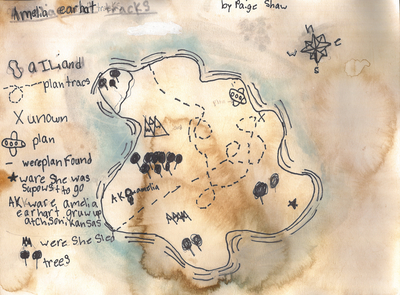 Amelia earhart tracks
by Paige Shaw
n
w e
s
a ILand
plan tracs
X unown
plan
were plan found
ware She was
Supowst to go
AK ware amelia
earhart gruwup
atchison, kansas
were She Sled
trees
X
AK amelia